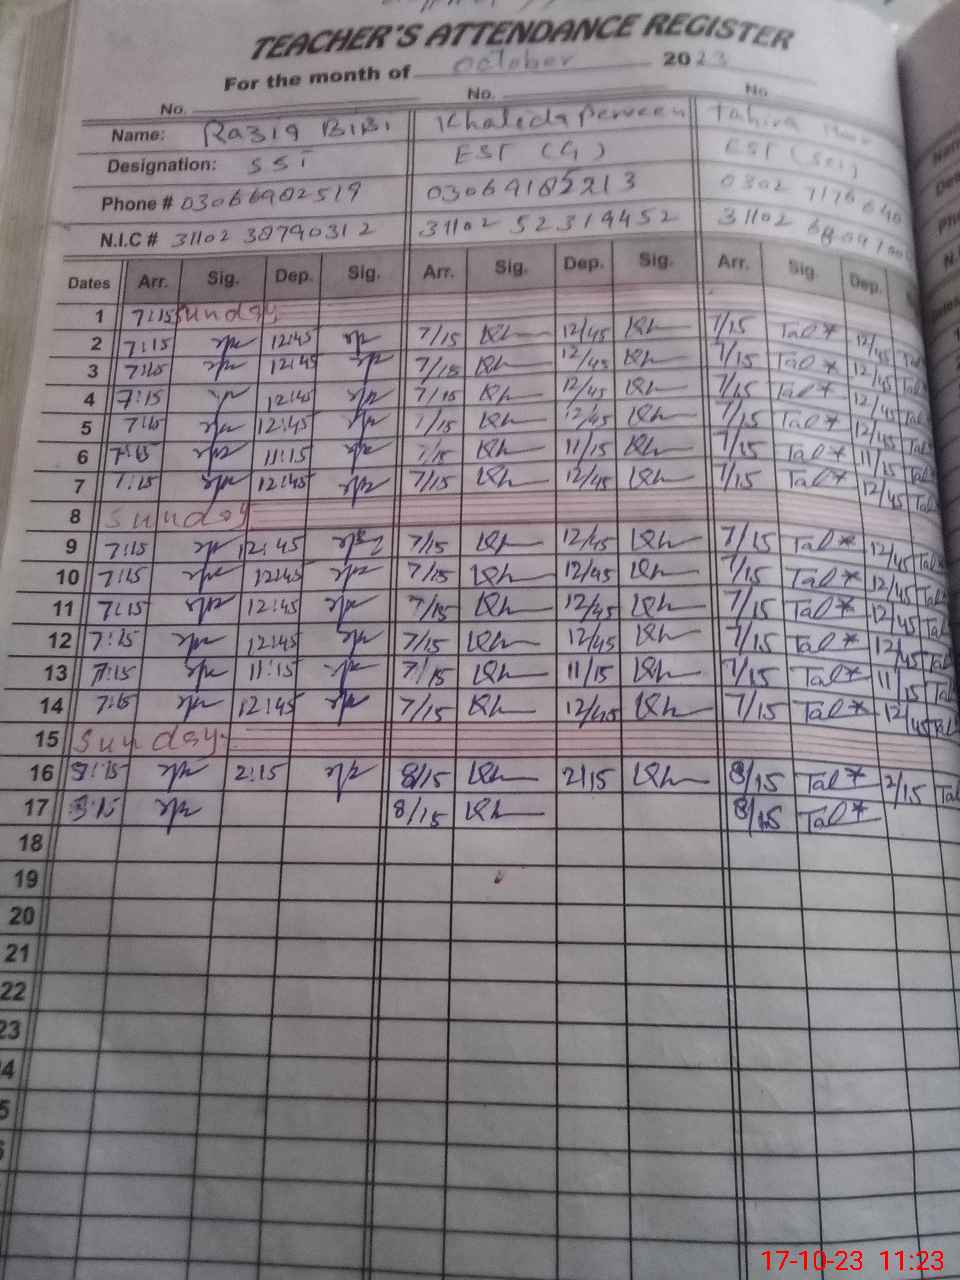 TEACHER'S ATTENDANCE REGISTER
For the month of October 2023
No. No. No.
Name: Razia BiBi Khaleda Perveen Tahira
Designation: SST EST (G) EST (Sci)
Phone # 03066902519 03069182213 0302 7176640
N.I.C # 31102 38790312 31102 52319452 31102
Dates Arr. Sig. Dep. Sig. Arr. Sig. Dep. Sig. Arr. Sig. Dep.
1 7:15 Sunday
2 7:15 12:45 7/15 Kh 12/45 Kh 7/15 Tal* 12/45 Tal
3 7:15 12:45 7/15 Kh 12/45 Kh 7/15 Tal* 12/45 Tal
4 7:15 12:45 7/15 Kh 12/45 Kh 7/15 Tal* 12/45 Tal
5 7:15 12:45 7/15 Kh 12/45 Kh 7/15 Tal* 12/45 Tal
6 7:15 11:15 7/15 Kh 11/15 Kh 7/15 Tal* 11/15 Tal
7 7:15 12:45 7/15 Kh 12/45 Kh 7/15 Tal* 12/45 Tal
8 Sunday
9 7:15 12:45 7/15 Kh 12/45 Kh 7/15 Tal* 12/45 Tal
10 7:15 12:45 7/15 Kh 12/45 Kh 7/15 Tal* 12/45 Tal
11 7:15 12:45 7/15 Kh 12/45 Kh 7/15 Tal* 12/45 Tal
12 7:15 12:45 7/15 Kh 12/45 Kh 7/15 Tal* 12/45 Tal
13 7:15 11:15 7/15 Kh 11/15 Kh 7/15 Tal* 11/15 Tal
14 7:15 12:45 7/15 Kh 12/45 Kh 7/15 Tal* 12/45 Tal
15 Sunday
16 8:15 2:15 8/15 Kh 2/15 Kh 8/15 Tal* 2/15 Tal
17 8:15 8/15 Kh 8/15 Tal*
18
19
20
21
22
23
17-10-23 11:23